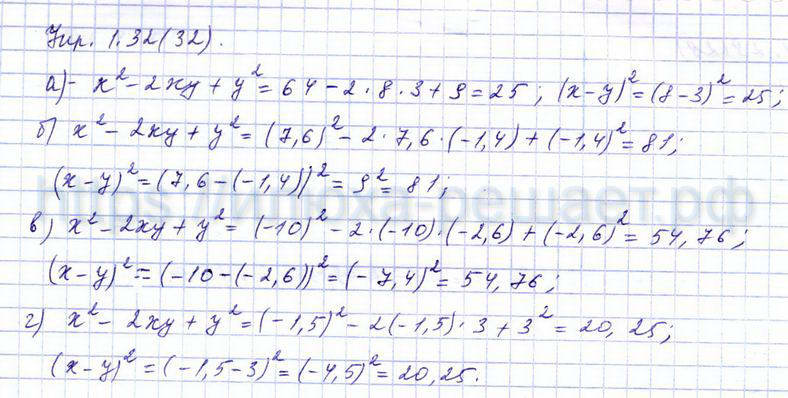 Упр. 1.32(32).
а)- x² - 2xy + y² = 64 - 2·8·3 + 9 = 25; (x-y)² = (8-3)² = 25;
б) x² - 2xy + y² = (7,6)² - 2·7,6·(-1,4) + (-1,4)² = 81;
(x-y)² = (7,6-(-1,4))² = 9² = 81;
в) x² - 2xy + y² = (-10)² - 2·(-10)·(-2,6) + (-2,6)² = 54,76;
(x-y)² = (-10-(-2,6))² = (-7,4)² = 54,76;
г) x² - 2xy + y² = (-1,5)² - 2(-1,5)·3 + 3² = 20,25;
(x-y)² = (-1,5-3)² = (-4,5)² = 20,25.